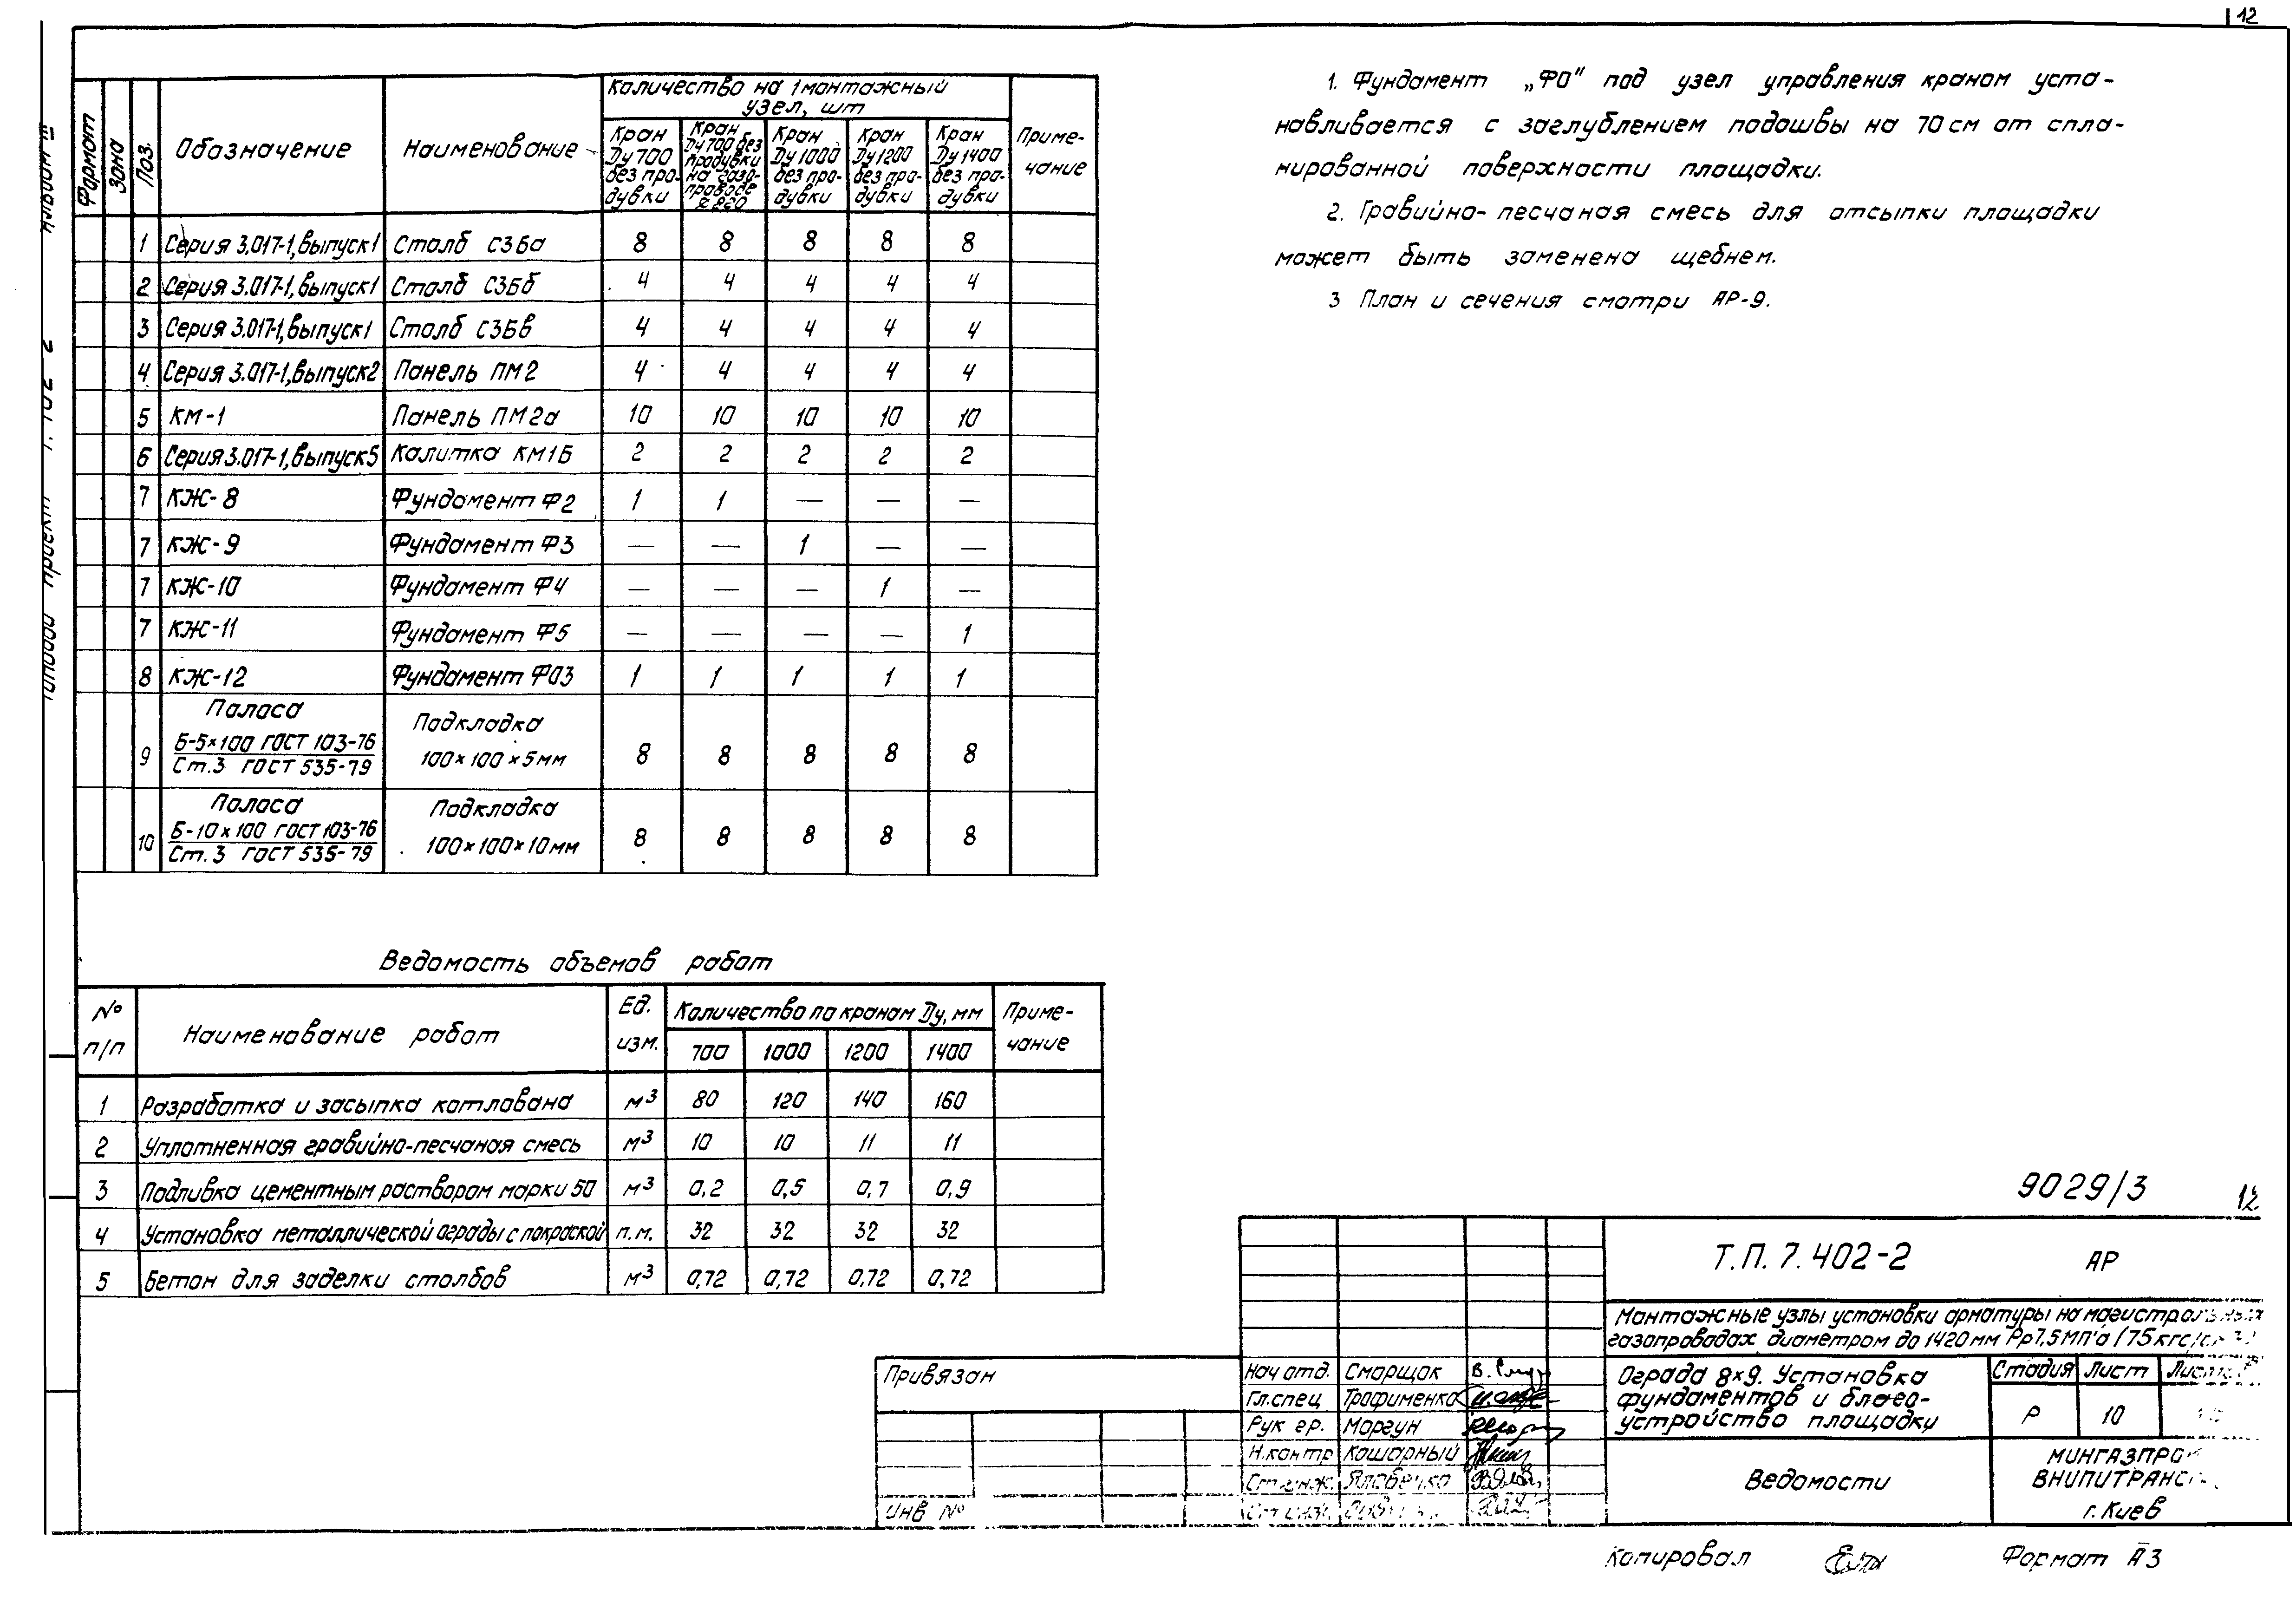 12
Альбом III
Типовой проект 7.402-2
Формат
Зона
Поз.
Обозначение
Наименование
Количество на 1 монтажный
узел, шт
Приме-
чание
Кран
Ду 700
без про-
дувки
Кран
Ду 700 без
продувки
на газо-
проводе
Кран
Ду 1000
без про-
дувки
Кран
Ду 1200
без про-
дувки
Кран
Ду 1400
без про-
дувки
1 Серия 3.017-1, выпуск 1 Столб С3Ба 8 8 8 8 8
2 Серия 3.017-1, выпуск 1 Столб С3Бб 4 4 4 4 4
3 Серия 3.017-1, выпуск 1 Столб С3Бв 4 4 4 4 4
4 Серия 3.017-1, выпуск 2 Панель ПМ2 4 4 4 4 4
5 КМ-1 Панель ПМ2а 10 10 10 10 10
6 Серия 3.017-1, выпуск 5 Калитка КМ1Б 2 2 2 2 2
7 КЖ-8 Фундамент Ф2 1 1 — — —
7 КЖ-9 Фундамент Ф3 — — 1 — —
7 КЖ-10 Фундамент Ф4 — — — 1 —
7 КЖ-11 Фундамент Ф5 — — — — 1
8 КЖ-12 Фундамент ФО3 1 1 1 1 1
Полоса Подкладка
9 Б-5×100 ГОСТ 103-76 100×100×5мм 8 8 8 8 8
Ст.3 ГОСТ 535-79
Полоса Подкладка
10 Б-10×100 ГОСТ 103-76 100×100×10мм 8 8 8 8 8
Ст.3 ГОСТ 535-79
1. Фундамент „ФО" под узел управления краном уста-
навливается с заглублением подошвы на 70 см от спла-
нированной поверхности площадки.
2. Гравийно-песчаная смесь для отсыпки площадки
может быть заменена щебнем.
3 План и сечения смотри АР-9.
Ведомость объемов работ
№
п/п
Наименование работ
Ед.
изм.
Количество по кранам Ду, мм
700 1000 1200 1400
Приме-
чание
1 Разработка и засыпка котлована м³ 80 120 140 160
2 Уплотненная гравийно-песчаная смесь м³ 10 10 11 11
3 Подливка цементным раствором марки 50 м³ 0,2 0,5 0,7 0,9
4 Установка металлической ограды с покраской п.м. 32 32 32 32
5 Бетон для заделки столбов м³ 0,72 0,72 0,72 0,72
9029/3 12
Т.П. 7.402-2 АР
Монтажные узлы установки арматуры на магистральных
газопроводах диаметром до 1420 мм Рр7,5 МПа (75 кгс/см²)
Привязан
Инв №
Нач отд. Сморщок
Гл.спец Трофименко
Рук гр. Моргун
Н.контр Кошарный
Ст.инж.
Ст.инж.
Ограда 8×9. Установка
фундаментов и благо-
устройство площадки
Стадия Лист
Р 10
Ведомости
МИНГАЗПРОМ
ВНИПИТРАНСГАЗ
г. Киев
Копировал
Формат А3